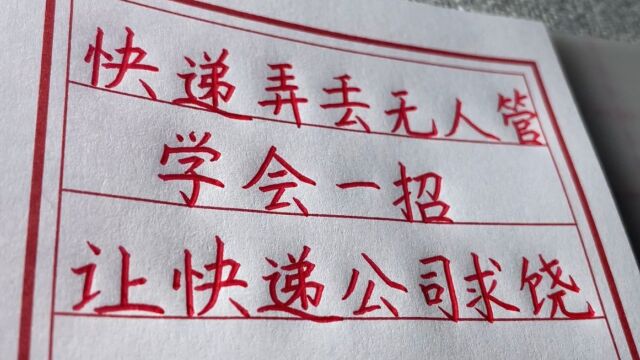 快递弄丢无人管
学会一招
让快递公司求饶